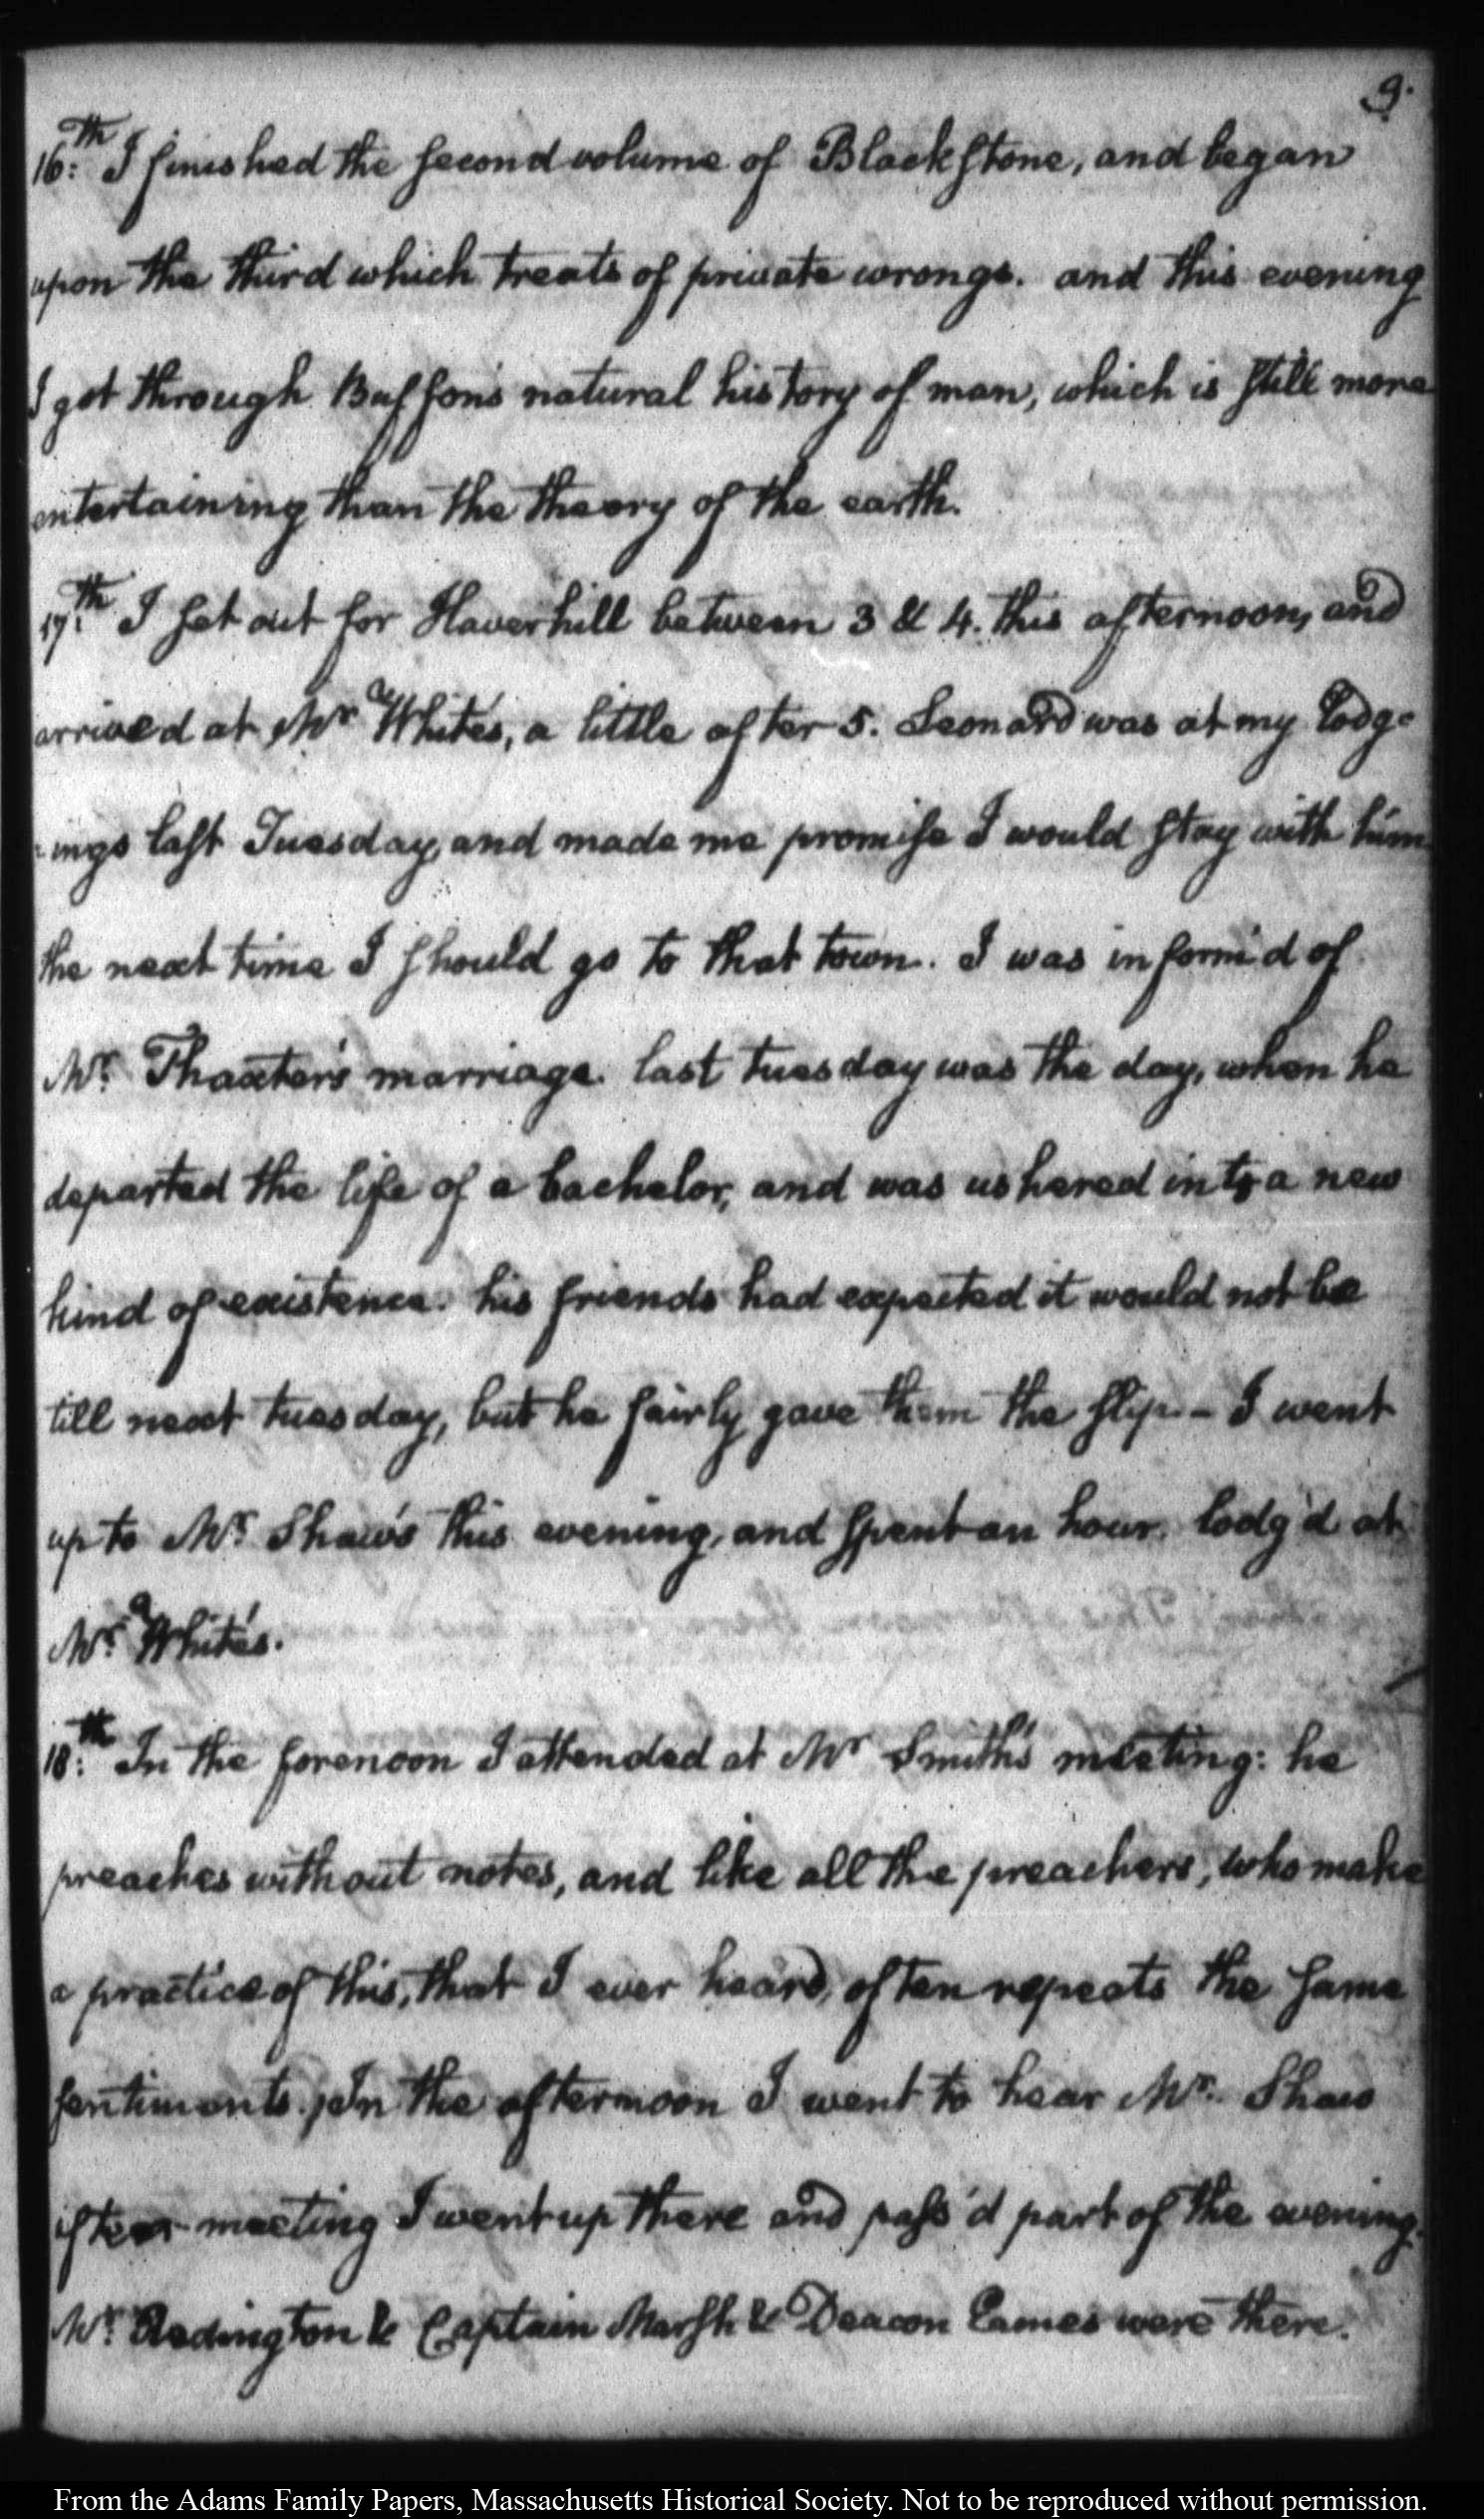 9.
16:th I finished the second volume of Blackstone, and began
upon the third which treats of private wrongs. and this evening
I got through Buffon's natural history of man, which is still more
entertaining than the theory of the earth.
17:th I set out for Haverhill between 3 & 4. this afternoon, and
arrived at Mr White's, a little after 5. Leonard was at my lodg-
-ings last Tuesday, and made me promise I would stay with him
the next time I should go to that town. I was inform'd of
Mr. Thaxter's marriage. last tuesday was the day, when he
departed the life of a bachelor, and was ushered into a new
kind of existence. his friends had expected it would not be
till next tuesday, but he fairly gave them the slip. – I went
up to Mr. Shaw's this evening, and spent an hour. lodg'd at
Mr. White's.
18:th In the forenoon I attended at Mr Smith's meeting: he
preaches without notes, and like all the preachers, who make
a practice of this, that I ever heard, often repeats the same
sentiments. In the afternoon I went to hear Mr. Shaw
after meeting I went up there and pass'd part of the evening.
Mr. Redington & Captain Marsh & Deacon Eames were there.
From the Adams Family Papers, Massachusetts Historical Society. Not to be reproduced without permission.